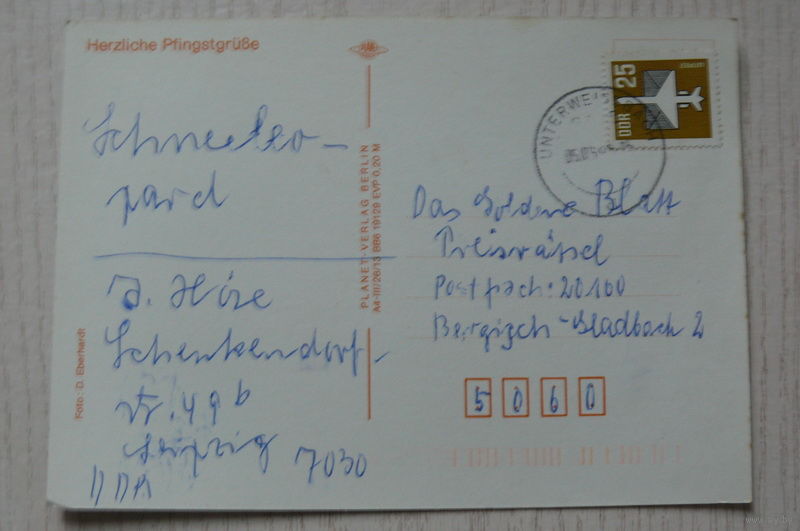 Herzliche Pfingstgrüße
Schneeleo-
pard
J.
Schenkendorf-
str. 49b
Leipzig 7030
DDR
Foto: D. Eberhardt
PLANET-VERLAG BERLIN
A4-III/26/13 BB6 19129 EVP 0,20 M
DDR 25
LUFTPOST
UNTERWE
Das Goldene Blatt
Preisrätsel
Postfach: 20160
Bergisch-Gladbach 2
5060